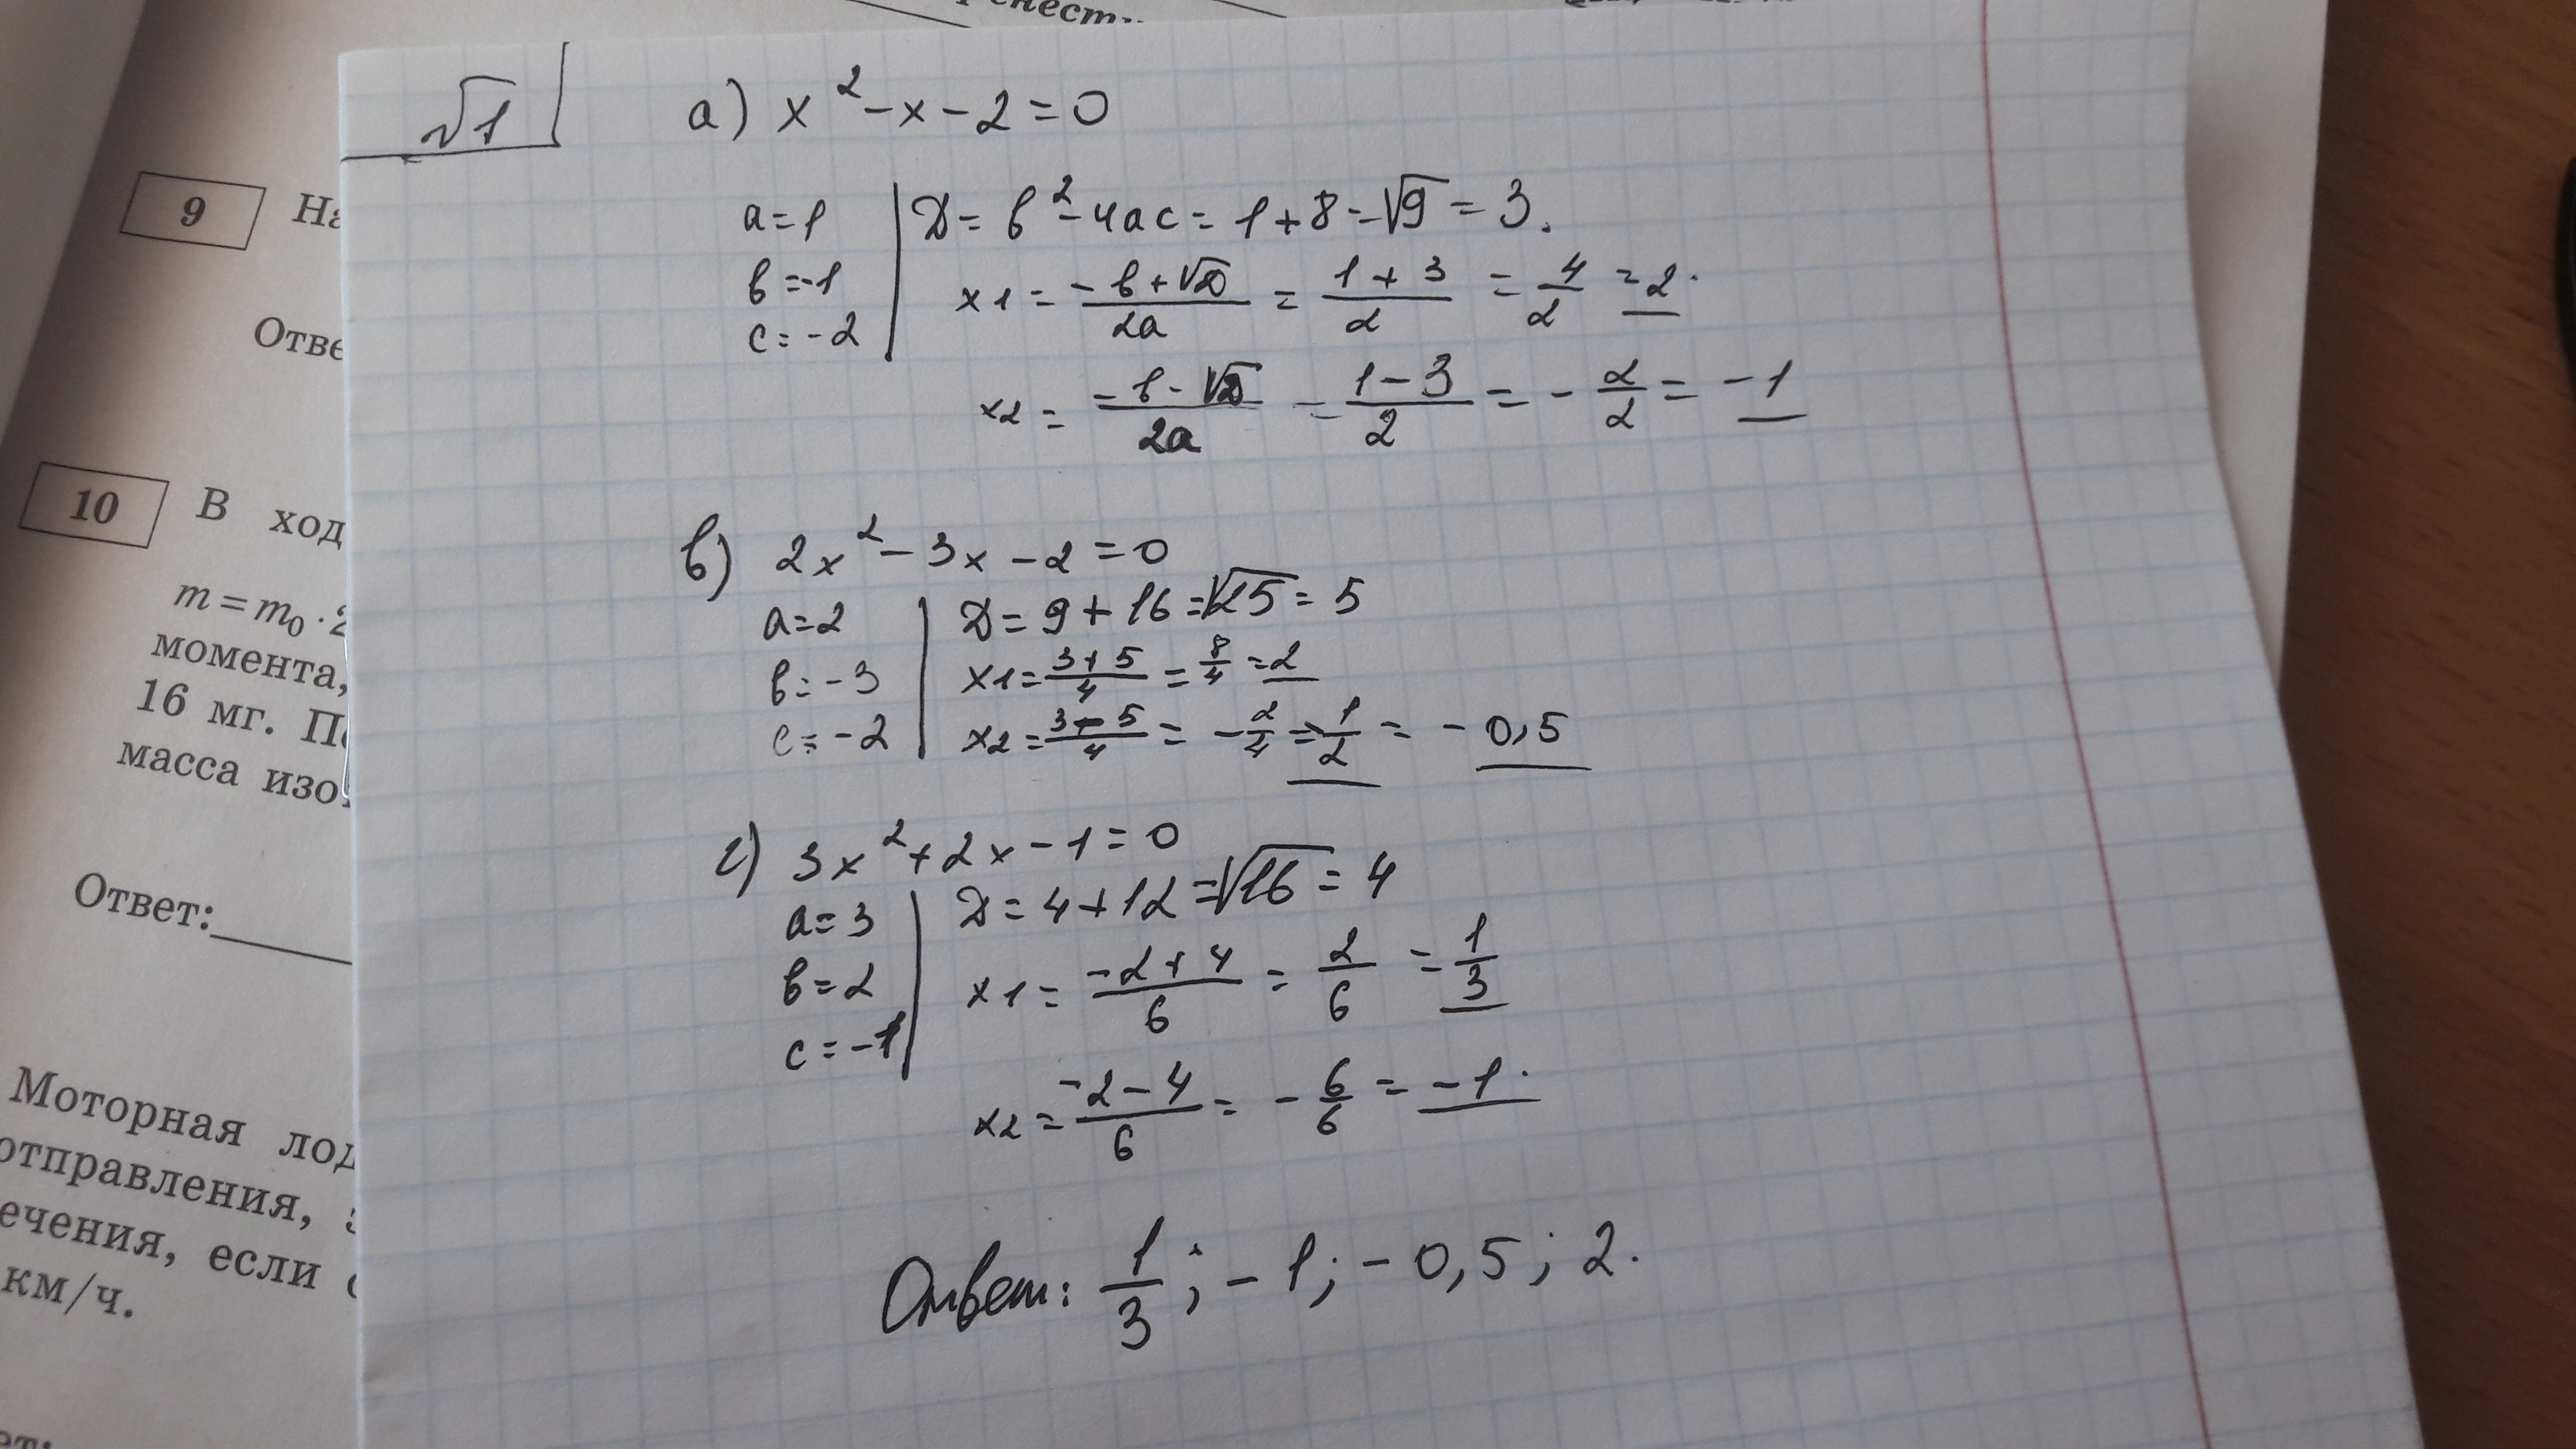 √1
а) x² - x - 2 = 0
a = 1
b = -1
c = -2
D = b² - 4ac = 1 + 8 = √9 = 3.
x1 = (-b + √D)/2a = (1 + 3)/2 = 4/2 = 2.
x2 = (-b - √D)/2a = (1 - 3)/2 = - 2/2 = -1
в) 2x² - 3x - 2 = 0
a = 2
b = -3
c = -2
D = 9 + 16 = √25 = 5
x1 = (3 + 5)/4 = 8/4 = 2
x2 = (3 - 5)/4 = - 2/4 = - 1/2 = - 0,5
г) 3x² + 2x - 1 = 0
a = 3
b = 2
c = -1
D = 4 + 12 = √16 = 4
x1 = (-2 + 4)/6 = 2/6 = 1/3
x2 = (-2 - 4)/6 = - 6/6 = -1.
Ответ: 1/3; -1; -0,5; 2.
9
10
В ход
m = m₀ · 2
момента,
16 мг.
масса изо
Ответ:
Моторная лод
отправления,
ечения, если
км/ч.